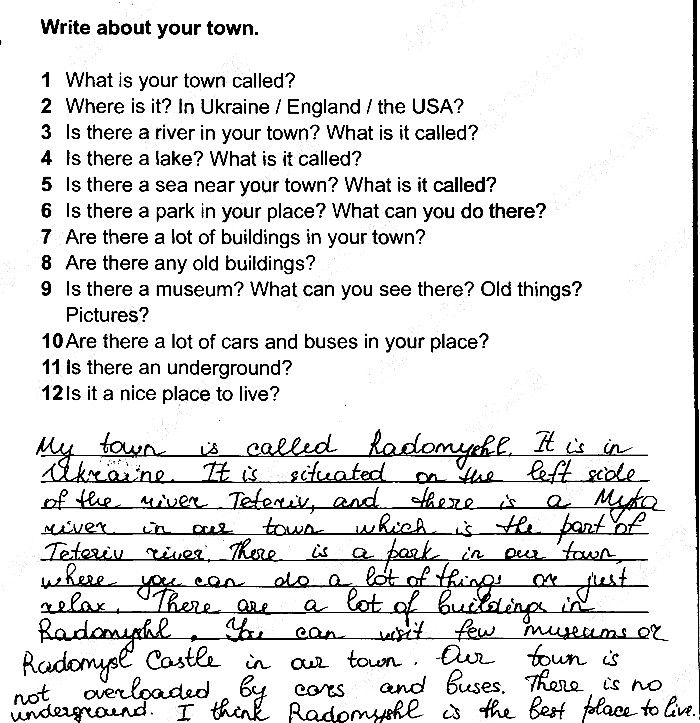 Write about your town.
1 What is your town called?
2 Where is it? In Ukraine / England / the USA?
3 Is there a river in your town? What is it called?
4 Is there a lake? What is it called?
5 Is there a sea near your town? What is it called?
6 Is there a park in your place? What can you do there?
7 Are there a lot of buildings in your town?
8 Are there any old buildings?
9 Is there a museum? What can you see there? Old things?
Pictures?
10 Are there a lot of cars and buses in your place?
11 Is there an underground?
12 Is it a nice place to live?
My town is called Radomyshl. It is in
Ukraine. It is situated on the left side
of the river Teteriv, and there is a Myka
river in our town which is the part of
Teteriv river. There is a park in our town,
where you can do a lot of things or just
relax. There are a lot of buildings in
Radomyshl. You can visit few museums or
Radomysl Castle in our town. Our town is
not overloaded by cars and buses. There is no
underground. I think Radomyshl is the best place to live.